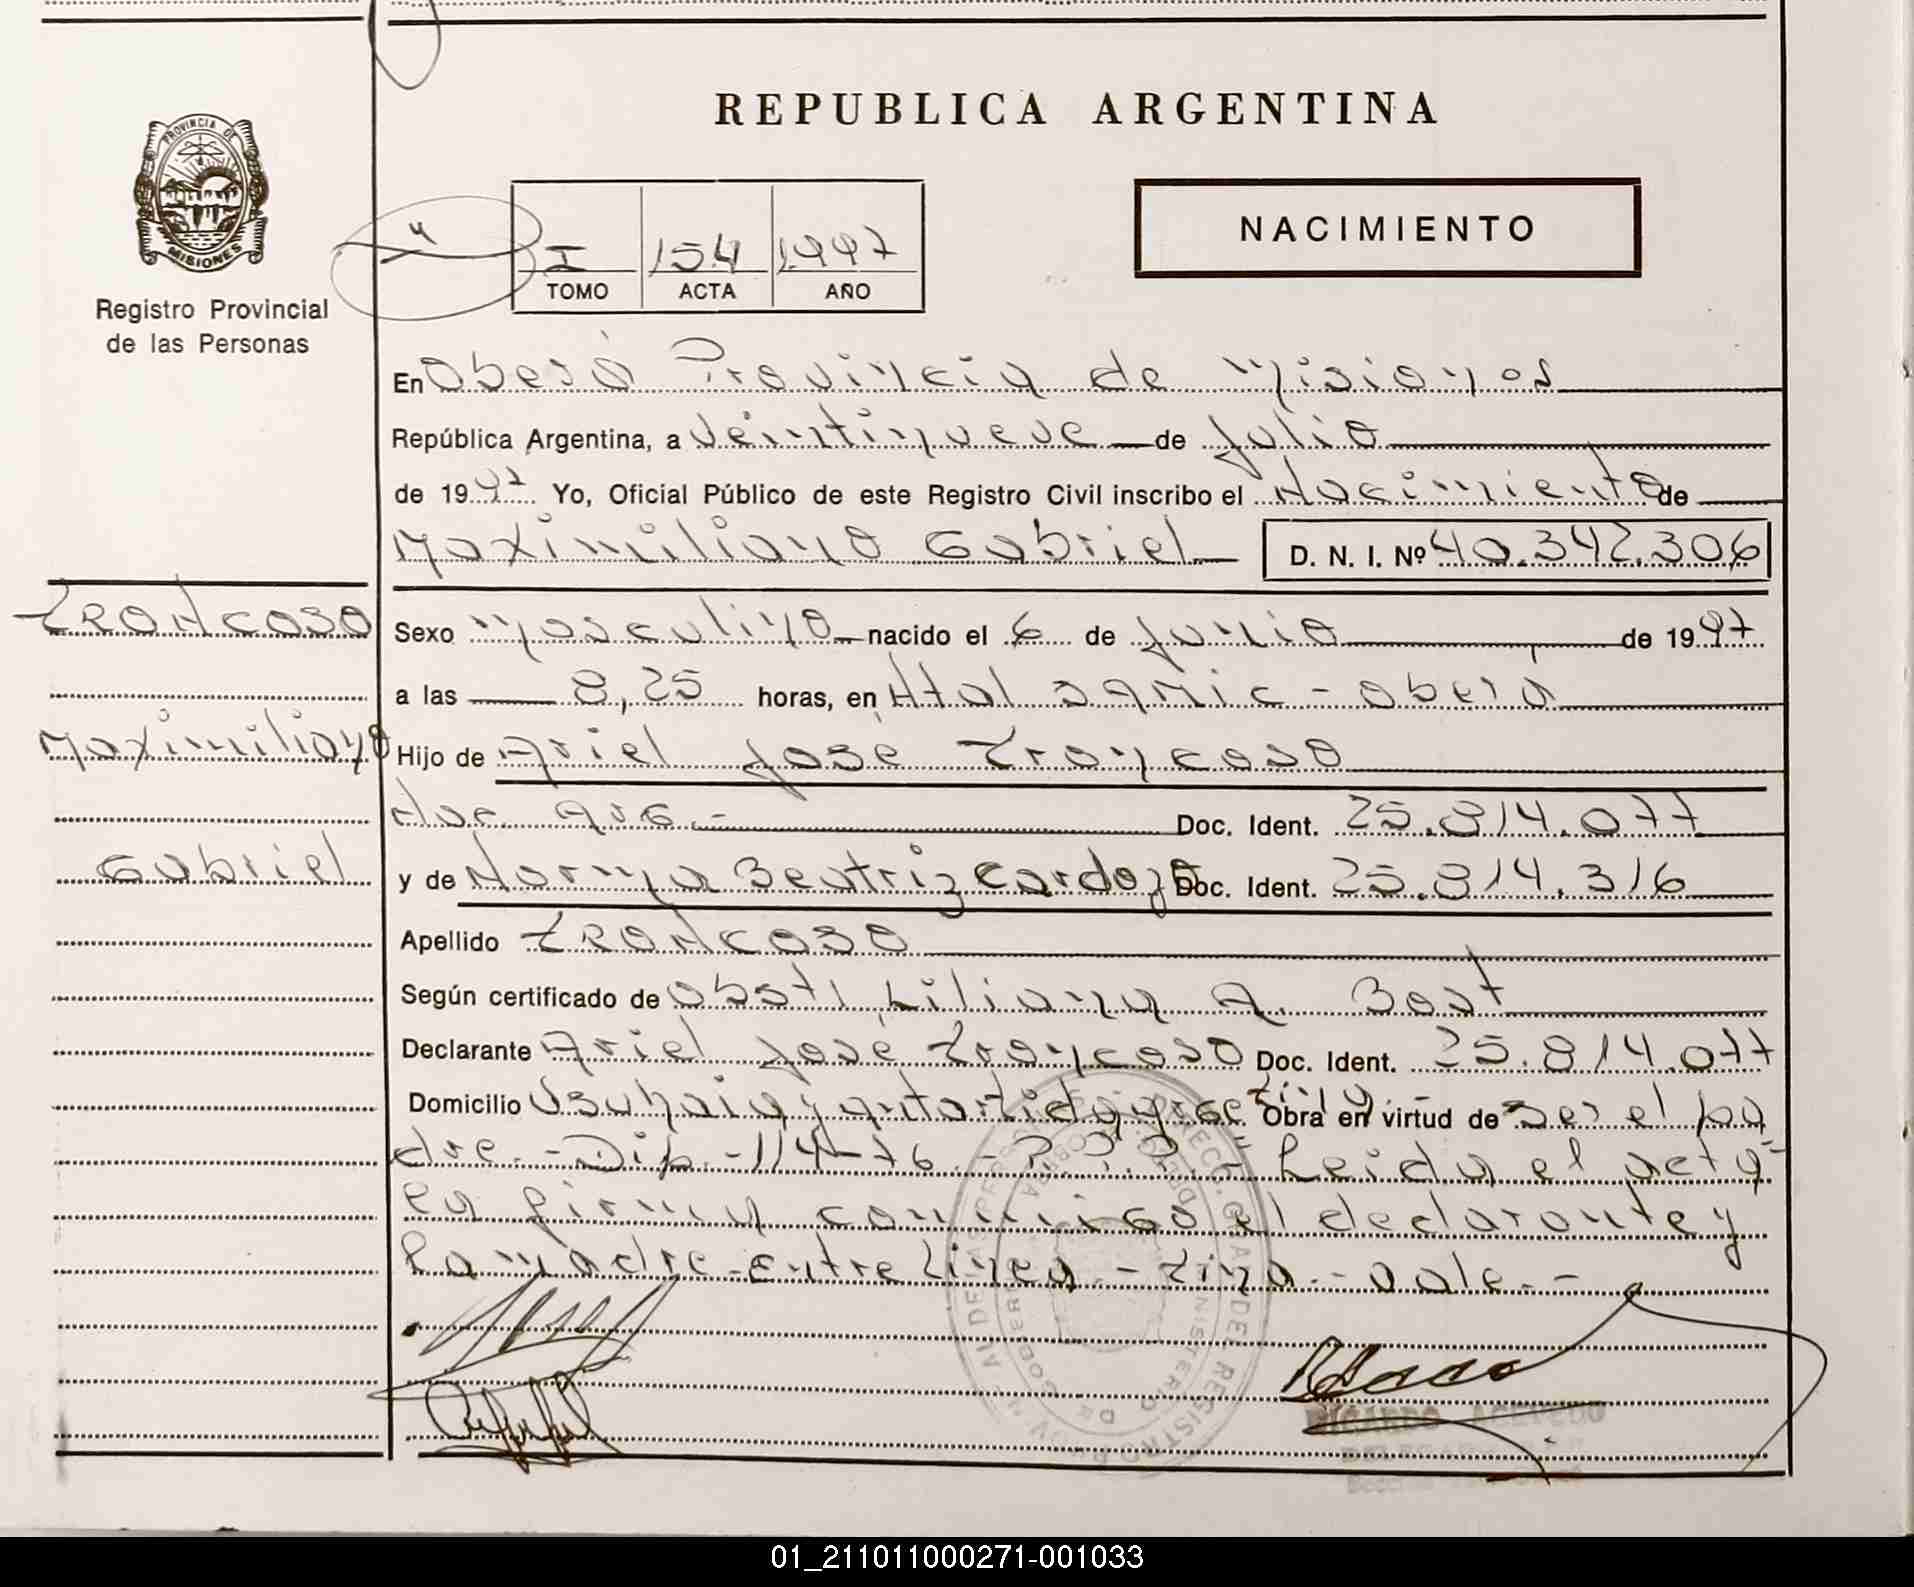 REPUBLICA ARGENTINA
PROVINCIA DE
MISIONES
Registro Provincial
de las Personas
I 154 1997
TOMO ACTA AÑO
NACIMIENTO
En Oberá Provincia de Misiones
República Argentina, a veintinueve de Julio
de 1997 Yo, Oficial Público de este Registro Civil inscribo el Nacimiento de
Maximiliano Gabriel D. N. I. Nº 40.342.306
TRONCOSO
Sexo Masculino nacido el 6 de Junio de 1997
a las 8,25 horas, en Htal SAMIC - Oberá
Maximiliano
Hijo de Ariel José Troncoso
Nac. Arg.- Doc. Ident. 25.814.077
Gabriel
y de Norma Beatriz Cardozo Doc. Ident. 25.814.316
Apellido TRONCOSO
Según certificado de Obst. Liliana A. Bost
Declarante Ariel José Troncoso Doc. Ident. 25.814.077
Domicilio Ushuaia y Antártida Arge tina Obra en virtud de ser el pa
dre.- Dip.-114-76.- Leida el acta
la firman conmigo el declarante y
la madre-Entre Línea.-tina.-vale.-
RICARDO ACEVEDO
01_211011000271-001033